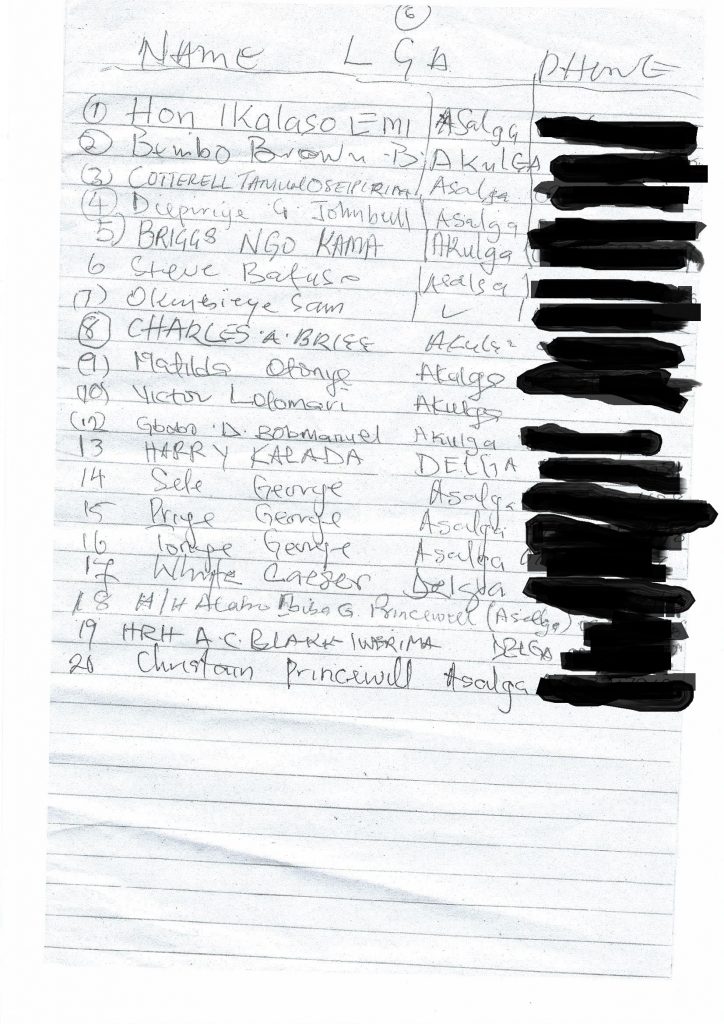 6
NAME LGA PHONE
1 Hon IKalaso EMI Asalga
2 Bumbo Brown .B. AKULGA
3 COTTERELL Asalga
4 Deepiriye G. Johnbull Asalga
5) BRIGGS NGO KAMA AKulga
6 Steve Asalga
7) Sam ✓
8 CHARLES .A. AKulg
9) Matilda Otonye AKulga
10) Victor Lolomari AKulga
12 Gbobo .D. BobManuel Akulga
13 HARRY KALADA DELGA
14 Sele George Asalga
15 Priye George Asalga
16 Tonye George Asalga
17 Whyte Caeser Delga
18 H/H Alabo Ibiba G. Princewill (Asalga)
19 HRH A.C. DELGA
20 Christain Princewill Asalga